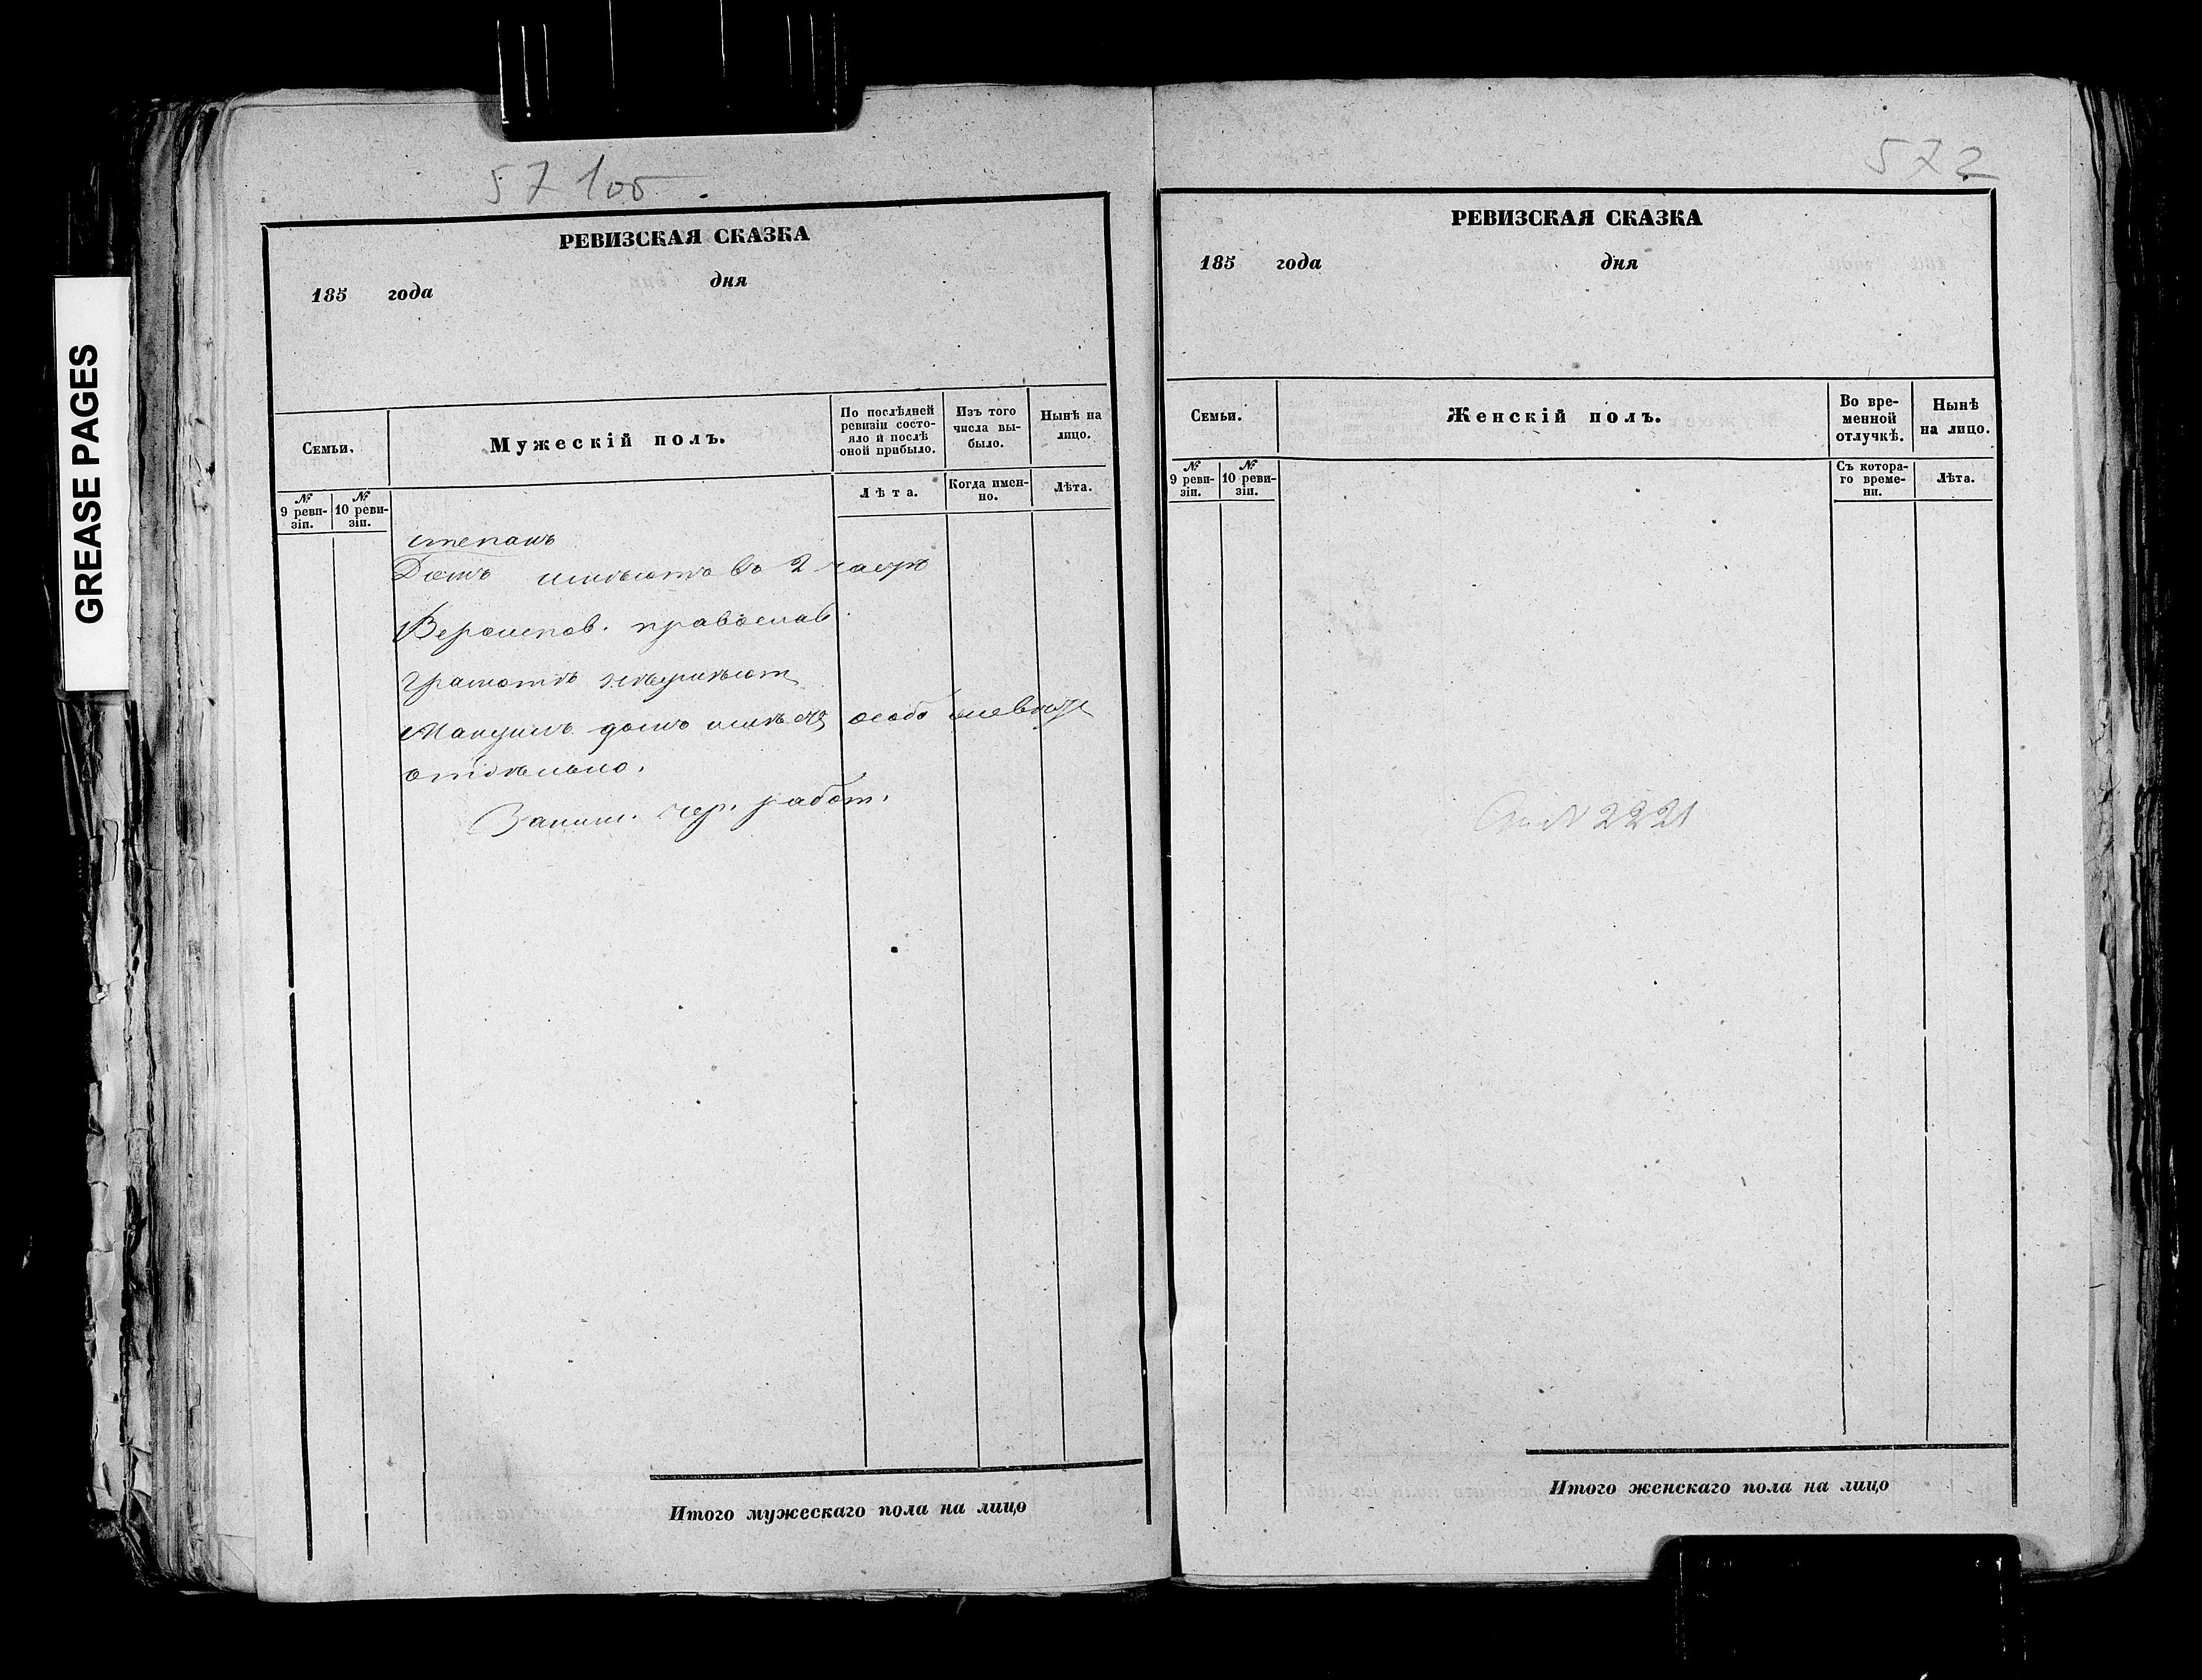 GREASE PAGES
57 105
РЕВИЗСКАЯ СКАЗКА
185 года дня
Семьи.
Мужескій полъ.
По послѣдней ревизіи состояло и послѣ оной прибыло.
Изъ того числа выбыло.
Нынѣ на лицо.
№ 9 ревизіи.
№ 10 ревизіи.
Лѣта.
Когда именно.
Лѣта.
степанъ
Домъ имѣютъ во 2 части
Вероиспов. православ.
Грамотѣ неумѣют
домъ имѣетъ особо
отдѣльно.
Заним. чер. работ.
Итого мужескаго пола на лицо
572
РЕВИЗСКАЯ СКАЗКА
185 года дня
Семьи.
Женскій полъ.
Во временной отлучкѣ.
Нынѣ на лицо.
№ 9 ревизіи.
№ 10 ревизіи.
Съ котораго времени.
Лѣта.
№ 2221
Итого женскаго пола на лицо